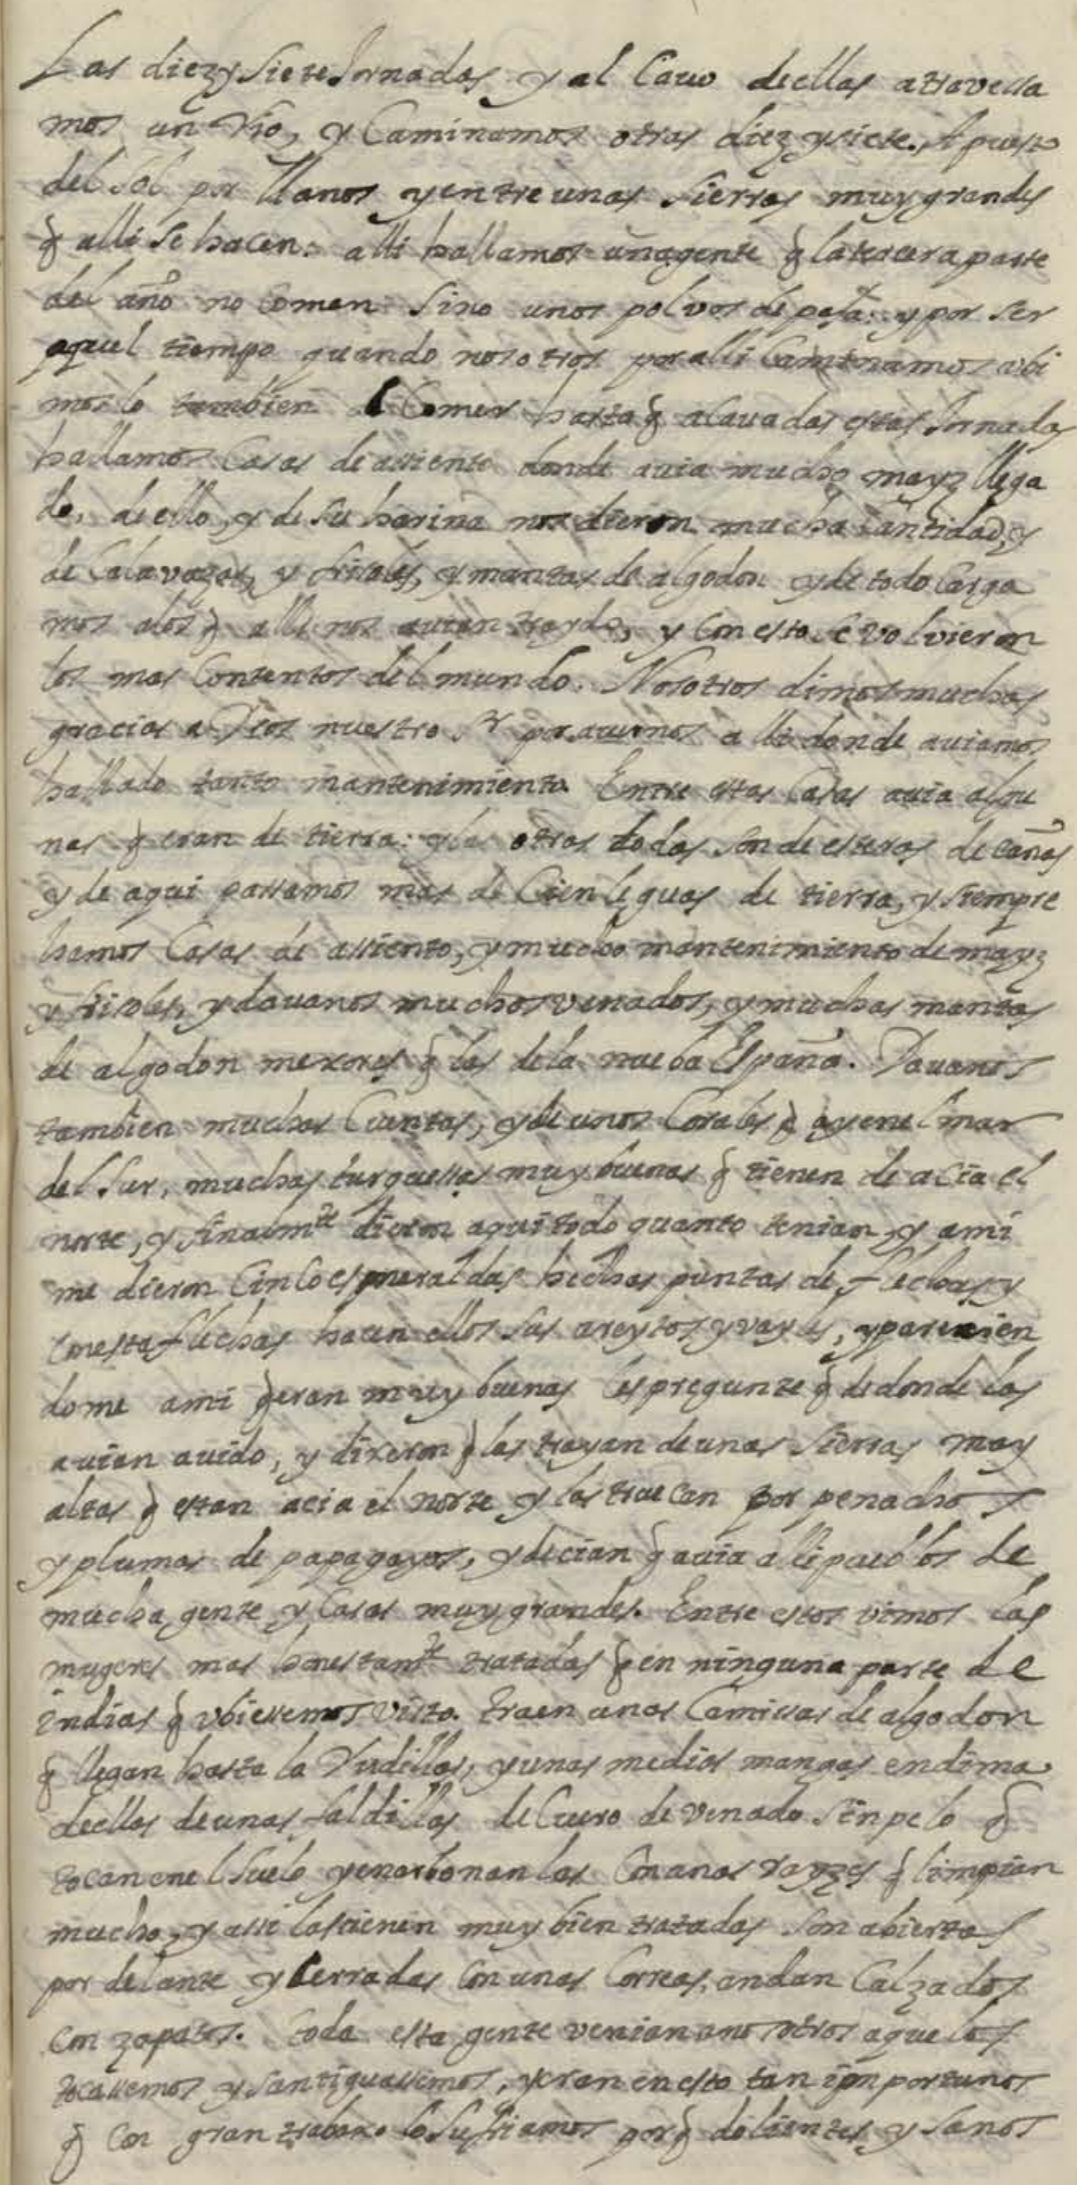 Las diez y siete Jornadas y al Cauo deellas atrauessa
mos un Rio, y Caminamos otras diez y siete. A puesto
del Sol por llanos y entre unas sierras muy grandes
q̃ alli se hacen: alli hallamos una gente q̃ la tercera parte
del año no Comen sino unos polvos de paja: y por ser
aquel tiempo quando nosotros por alli Caminamos ubi
moslo tambien de Comer hasta q̃ acauadas estas Jornadas
hallamos Casas de assiento donde auia mucho mayz llega
do, de ello, y de su harina nos dieron mucha cantidad, y
de Calavazas, y frisoles, y mantas de algodon y de todo Carga
mos a los q̃ alli nos auian traydo, y Con esto se volvieron
los mas Contentos del mundo. Nosotros dimos muchas
gracias a Dios nuestro Sr por auernos alli donde auiamos
hallado tanto mantenimiento. Entre estas Casas auia algu
nas q̃ eran de tierra: y las otras todas son de esteras de cañas
y de aqui passamos mas de Cien leguas de tierra, y siempre
hamos Casas de assiento, y mucho mantenimiento de mayz
y frisoles, y dauanos muchos venados, y muchas mantas
de algodon mexores q̃ las de la nueba España. Dauanos
tambien muchas Cuentas, y de unos Corales q̃ ay en el mar
del Sur, muchas turquessas muy buenas q̃ tienen de acia el
norte, y finalmte dieron aqui todo quanto tenian, y a mi
me dieron Cinco esmeraldas hechas puntas de flechas y
Con esta flechas hacen ellos sus areytos y vayles, y parecien
dome a mi q̃ eran muy buenas les pregunte q̃ de donde las
auian auido, y dixeron q̃ las trayan de unas sierras muy
altas q̃ estan acia el norte y las truecan por penachos
y plumas de papagayos, y decian q̃ auia alli pueblos de
mucha gente y Casas muy grandes. Entre estos vimos las
mugeres mas honestamte tratadas q̃ en ninguna parte de
indias q̃ ubiessemos visto. traen unas Camissas de algodon
q̃ llegan hasta la Rodillas, y unas medias mangas encima
deellas de unas faldillas de Cuero de venado sin pelo q̃
tocan en el suelo y enxabonanlas Con unas rayzes q̃ limpian
mucho, y assi las tienen muy bien tratadas son abiertas
por delante y Cerradas Con unas Correas. andan Calzados
con zapatos. toda esta gente venian a nosotros a que los
tocassemos y santiguassemos, y eran en esto tan inportunos
q̃ Con gran trabaxo lo sufriamos porq̃ dolientes y sanos